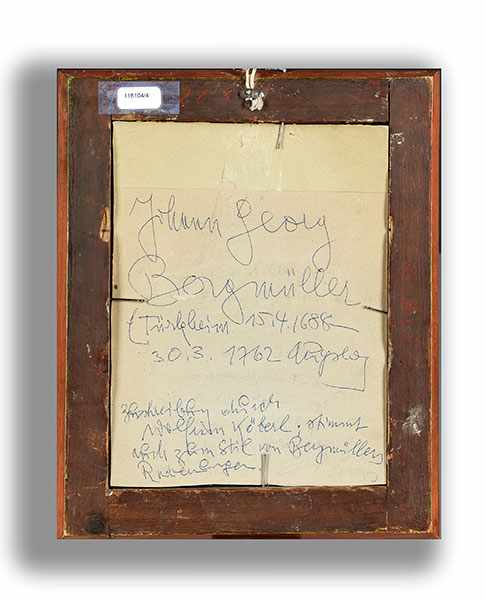 1161044
Johann Georg
Bergmüller
(Türkheim 15.4.1688–
30.3. 1762 Augsbg
Zuschreibg durch
Köberl. stimmt
auch zum Stil von Bergmüllers